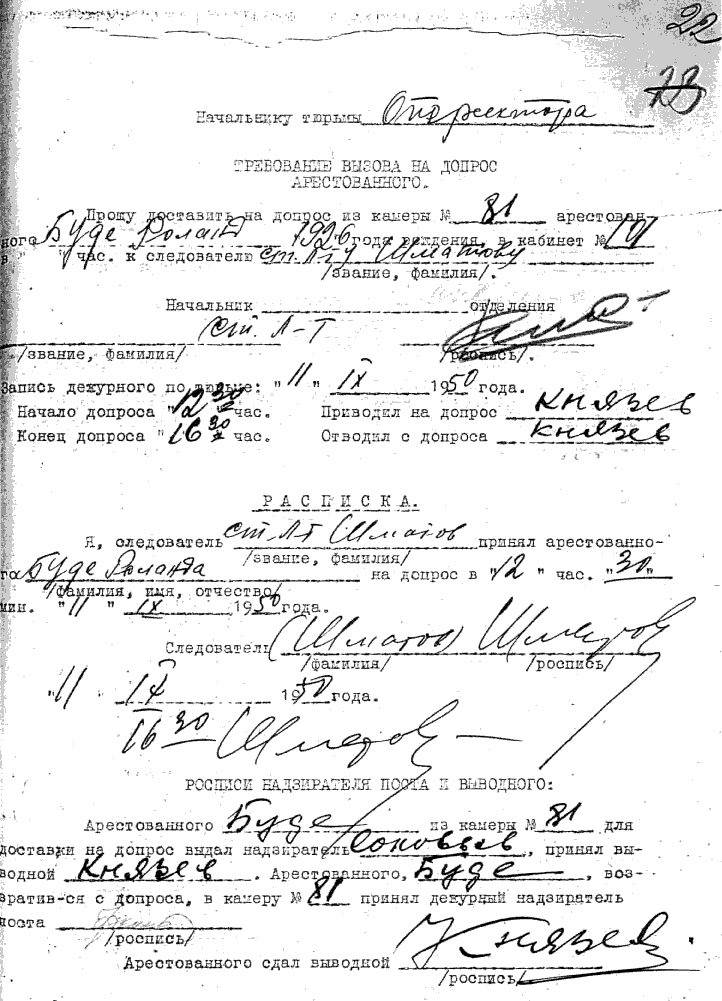 22
23
Начальнику тюрьмы Оперсектора
ТРЕБОВАНИЕ ВЫЗОВА НА ДОПРОС
АРЕСТОВАННОГО.
Прошу доставить на допрос из камеры № 81 арестован-
ного Буде Роланд 1926 года рождения, в кабинет № 101
в " " час. к следователю ст. Л-ту Шматову
/звание, фамилия/.
Начальник отделения
ст. Л-Т
/звание, фамилия/ /роспись/.
Запись дежурного по тюрьме: "11" IX 1950 года.
Начало допроса "12 30 час. Приводил на допрос Князев
Конец допроса "16 30 час. Отводил с допроса Князев
РАСПИСКА.
Я, следователь ст. Лт Шматов принял арестованно-
/звание, фамилия/
го Буде Роланда на допрос в "12" час. "30"
/фамилия, имя, отчество/
мин. "11" IX 1950 года.
Следователь (Шматов) Шматов
/фамилия/ /роспись/
"11 IX 1950 года.
16 30 Шматов
РОСПИСИ НАДЗИРАТЕЛЯ ПОСТА И ВЫВОДНОГО:
Арестованного Буде из камеры № 81 для
доставки на допрос выдал надзиратель Соковьев, принял вы-
водной Князев. Арестованного, Буде, воз-
вратив-ся с допроса, в камеру № 81 принял дежурный надзиратель
поста
/роспись/
Арестованного сдал выводной Князев
/роспись/